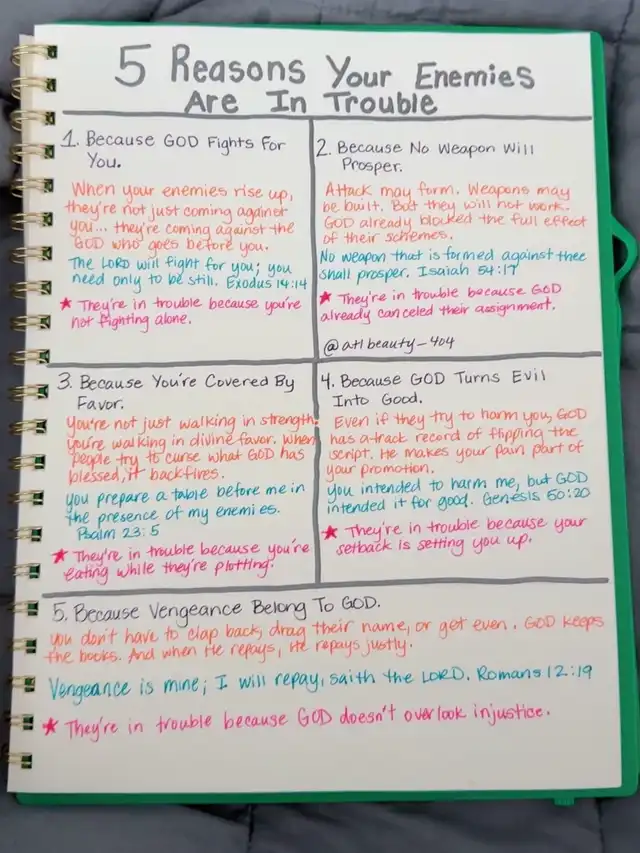 5 Reasons Your Enemies
Are In Trouble
1. Because GOD Fights For
You.
When your enemies rise up,
they're not just coming against
you... they're coming against the
GOD who goes before you.
The LORD will fight for you; you
need only to be still. Exodus 14:14
★ They're in trouble because you're
not fighting alone.
2. Because No Weapon Will
Prosper.
Attack may form. Weapons may
be built. But they will not work.
GOD already blocked the full effect
of their schemes.
No weapon that is formed against thee
shall prosper. Isaiah 54:17
★ They're in trouble because GOD
already canceled their assignment.
@atlbeauty_404
3. Because You're Covered By
Favor.
You're not just walking in strength;
you're walking in divine favor. When
people try to curse what GOD has
blessed, it backfires.
you prepare a table before me in
the presence of my enemies.
Psalm 23:5
★ They're in trouble because you're
eating while they're plotting.
4. Because GOD Turns Evil
Into Good.
Even if they try to harm you, GOD
has a track record of flipping the
script. He makes your pain part of
your promotion.
you intended to harm me, but GOD
intended it for good. Genesis 50:20
★ They're in trouble because your
setback is setting you up.
5. Because Vengeance Belong To GOD.
you don't have to clap back, drag their name, or get even. GOD keeps
the books. And when He repays, He repays justly.
Vengeance is mine; I will repay, saith the LORD. Romans 12:19
★ They're in trouble because GOD doesn't overlook injustice.